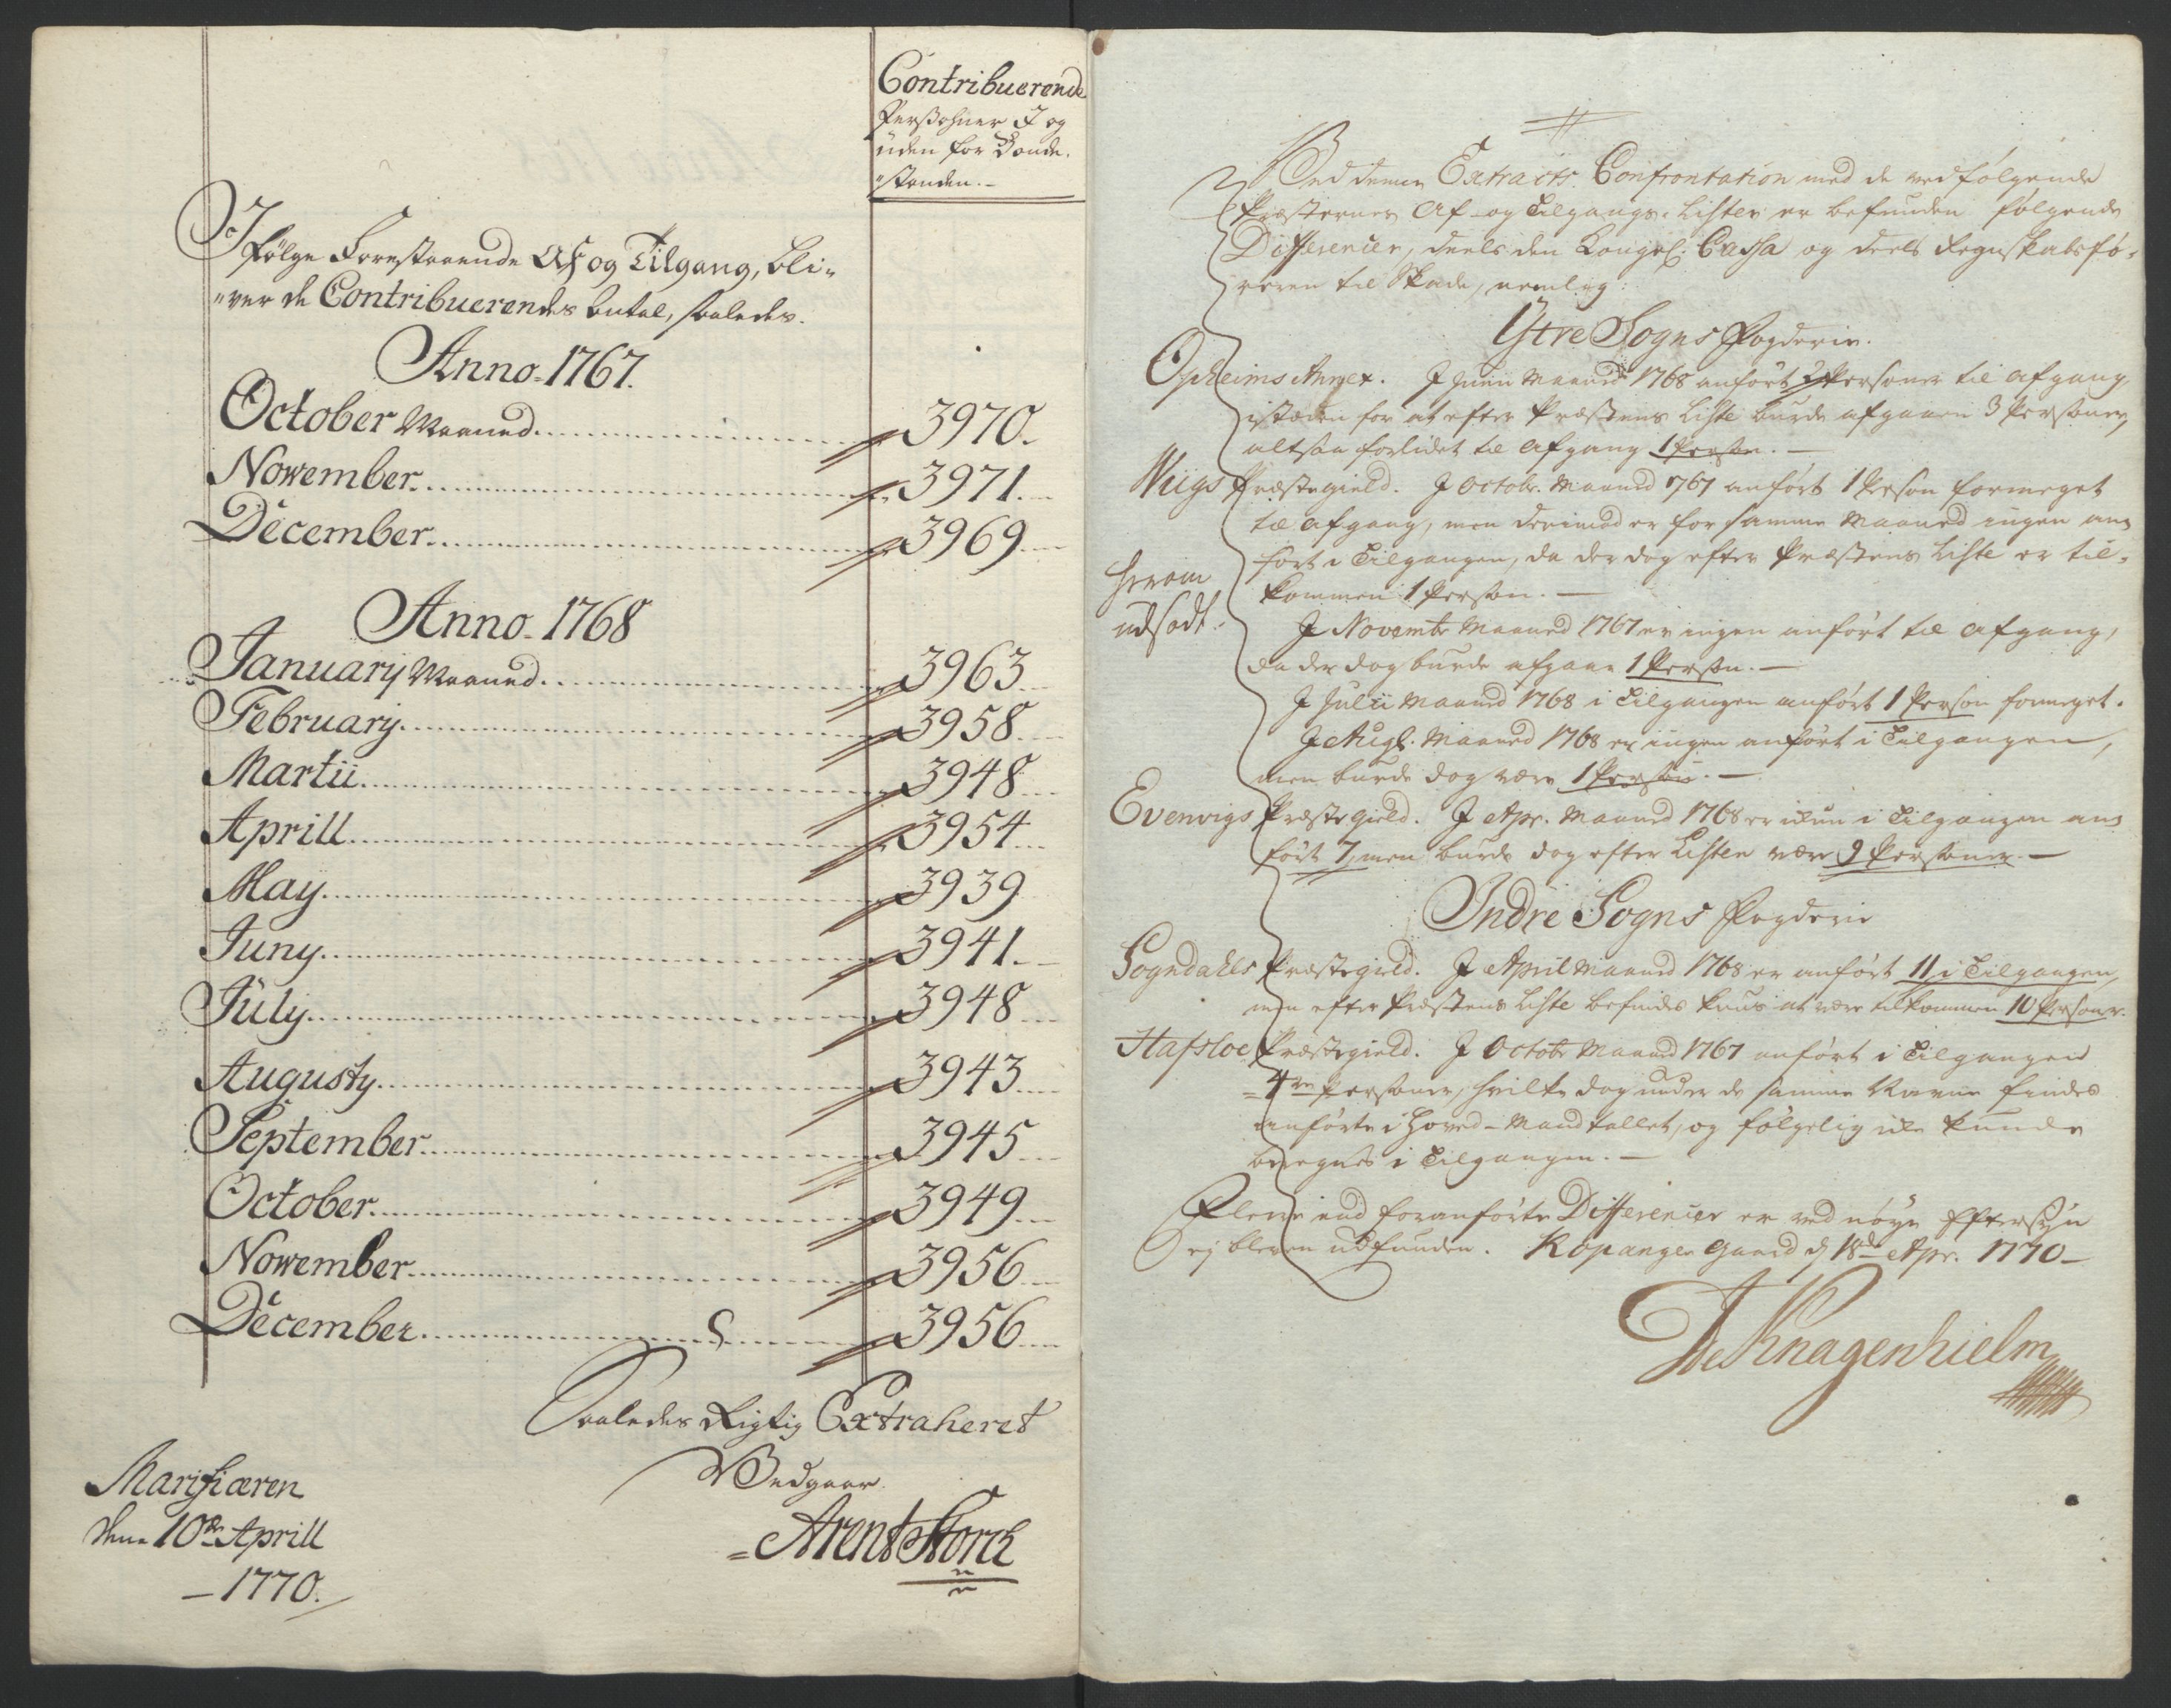 Contribuerende
Persohner I og
uden for Bonde-
"standen.-
Ifølge Forestaaende Af og Tilgang, bli-
"ver de Contribuerendes Antal, saaledes.
Anno 1767.
October Maaned 3970.
November 3971.
December 3969
Anno 1768
Januarij Maaned 3963
Februarij 3958
Martii 3948
Aprill 3954
May 3939
Juny 3941.
July 3948
Augusty 3943
September 3945
October 3949
November 3956
December 3956
Saaledes Rigtig Extraheret
Vedgaar
Arent Storch
Marifiæren
den 10de Aprill
1770.
Ved denne Extracts Confrontation med de vedfølgende
Præsternes Af- og Tilgangs-Lister er befunden følgende
Differencer, deels den Kongel: Cassa og deels Regnskabsfø-
reren til Skade, nemlig:
Ytre Sogns Fogderie.
Opheims Annex. I Junii Maaned 1768 anført 2 Personer til Afgang,
istæden for at efter Præstens Liste burde afgaaen 3 Personer,
altsaa forlidet til Afgang 1 Person.-
Wiigs Præstegield. I Octobr. Maaned 1767 anført 1 Person formeget
til Afgang, men derimod er for samme Maaned ingen an-
ført i Tilgangen, da der dog efter Præstens Liste er til-
kommen 1 Person.-
herom
udsadt.
I Novembr Maaned 1767 er ingen anført til Afgang,
da der dog burde afgaae 1 Person.-
I Julii Maaned 1768 i Tilgangen anført 1 Person formeget.
I Augl. Maaned 1768 er ingen anført i Tilgangen,
men burde dog være 1 Person.-
Evenvigs Præstegield. I Apr. Maaned 1768 er ikun i Tilgangen an-
ført 7, men burde dog efter Listen være 9 Personer.-
Indre Sogns Fogderie
Sogndahls Præstegield. I April Maaned 1768 er anført 11 i Tilgangen,
men efter Præstens Liste befindes kuns at være tilkommen 10 Personer.
Hafsloe Præstegield. I Octobr Maaned 1767 anført i Tilgangen
4re Personer, hvilke dog under de samme Navne findes
anførte i Hoved-Mandtallet, og følgelig ike kunde
beregnes i Tilgangen.-
Flere end foranførte Differencer er ved nøye Eftersyn
ej bleven udfunden. Kopanger Gaard d 18de Apr. 1770-
De Knagenhielm